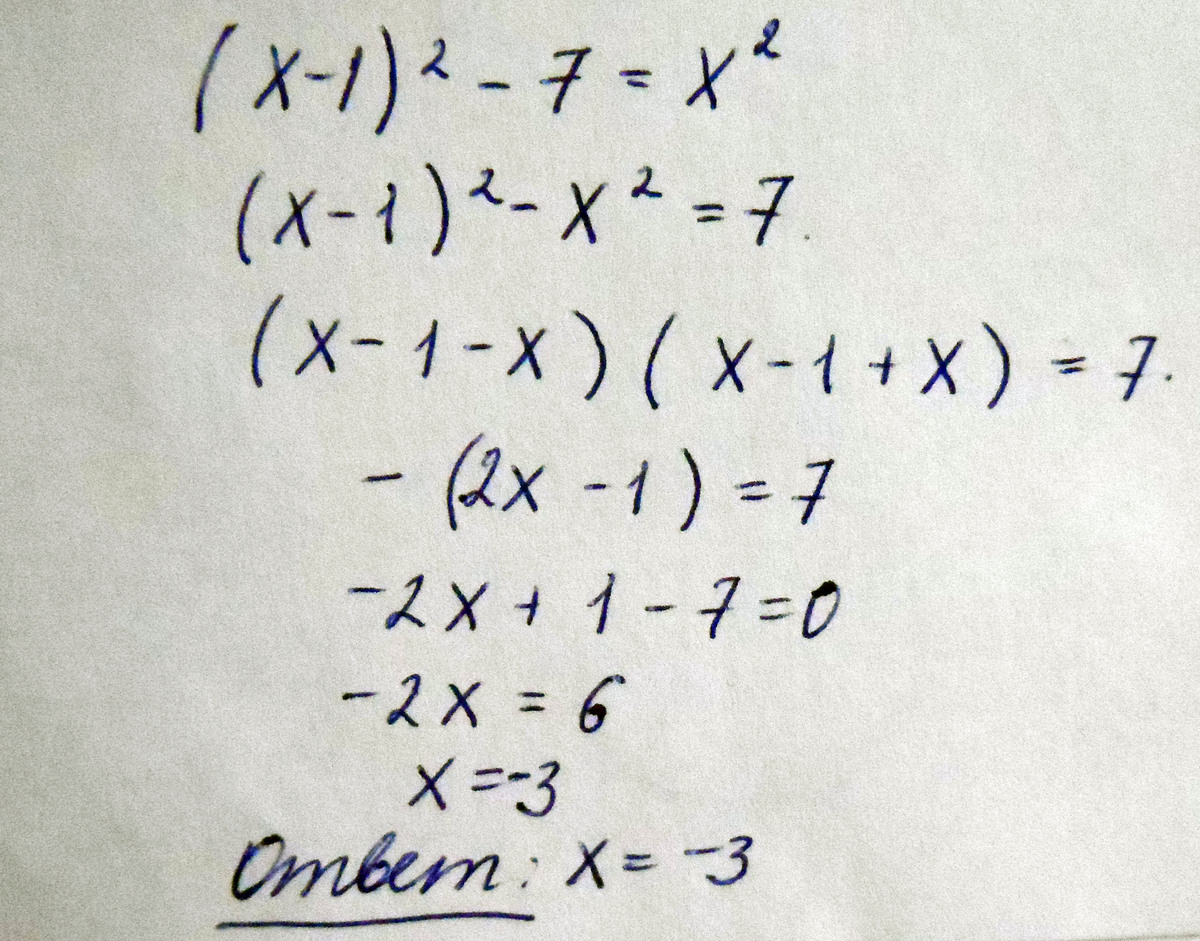 (x-1)² - 7 = x²
(x-1)² - x² = 7.
(x-1-x)(x-1+x) = 7.
- (2x-1) = 7
-2x + 1 - 7 = 0
-2x = 6
x = -3
Ответ: x = -3